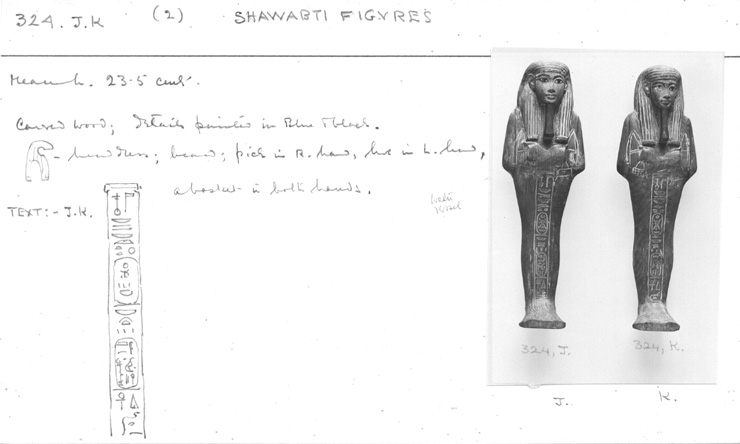 324. J.K (2) SHAWABTI FIGVRES
Meas. h. 23·5 cents.
Carved wood; details painted in Blue & black.
- headdress; beard; pick in R. hand, hoe in L. hand,
a basket in both hands.
Water
vessel
TEXT:- J.K.
324, J. 324, K.
J. K.